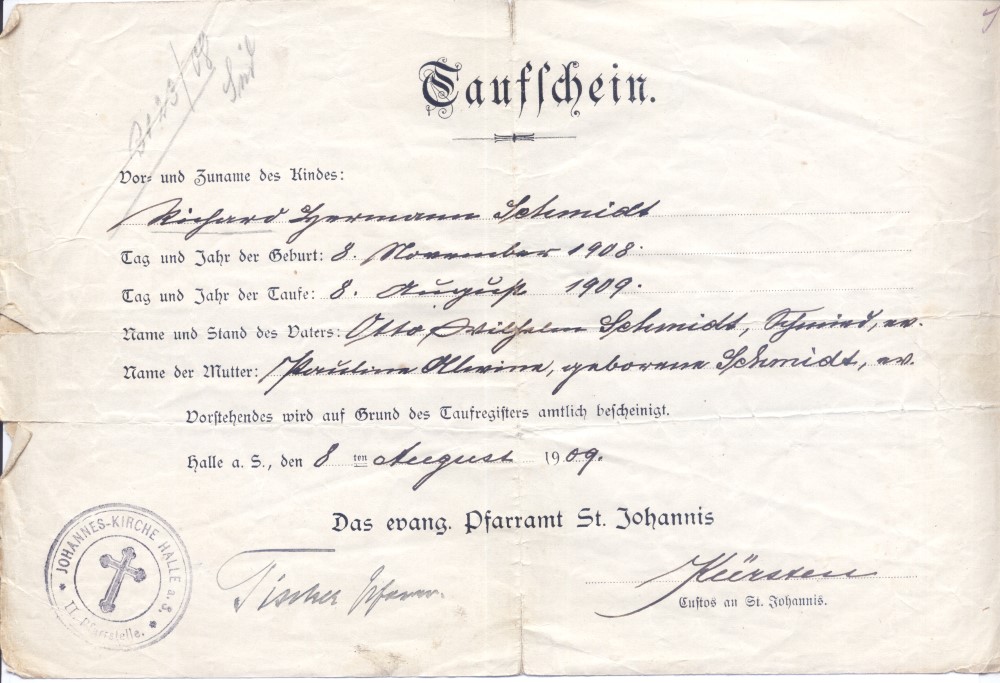 Taufschein.
Vor- und Zuname des Kindes:
Richard Hermann Schmidt
Tag und Jahr der Geburt: 8. November 1908.
Tag und Jahr der Taufe: 8. August 1909.
Name und Stand des Vaters: Otto Wilhelm Schmidt, Schmied, ev.
Name der Mutter: Pauline Alwine, geborene Schmidt, ev.
Vorstehendes wird auf Grund des Taufregisters amtlich bescheinigt.
Halle a. S., den 8 ten August 1909.
Das evang. Pfarramt St. Johannis
JOHANNES-KIRCHE HALLE a. S.
II. Pfarrstelle.
Tischer Pfarrer.
Kürsten
Custos an St. Johannis.